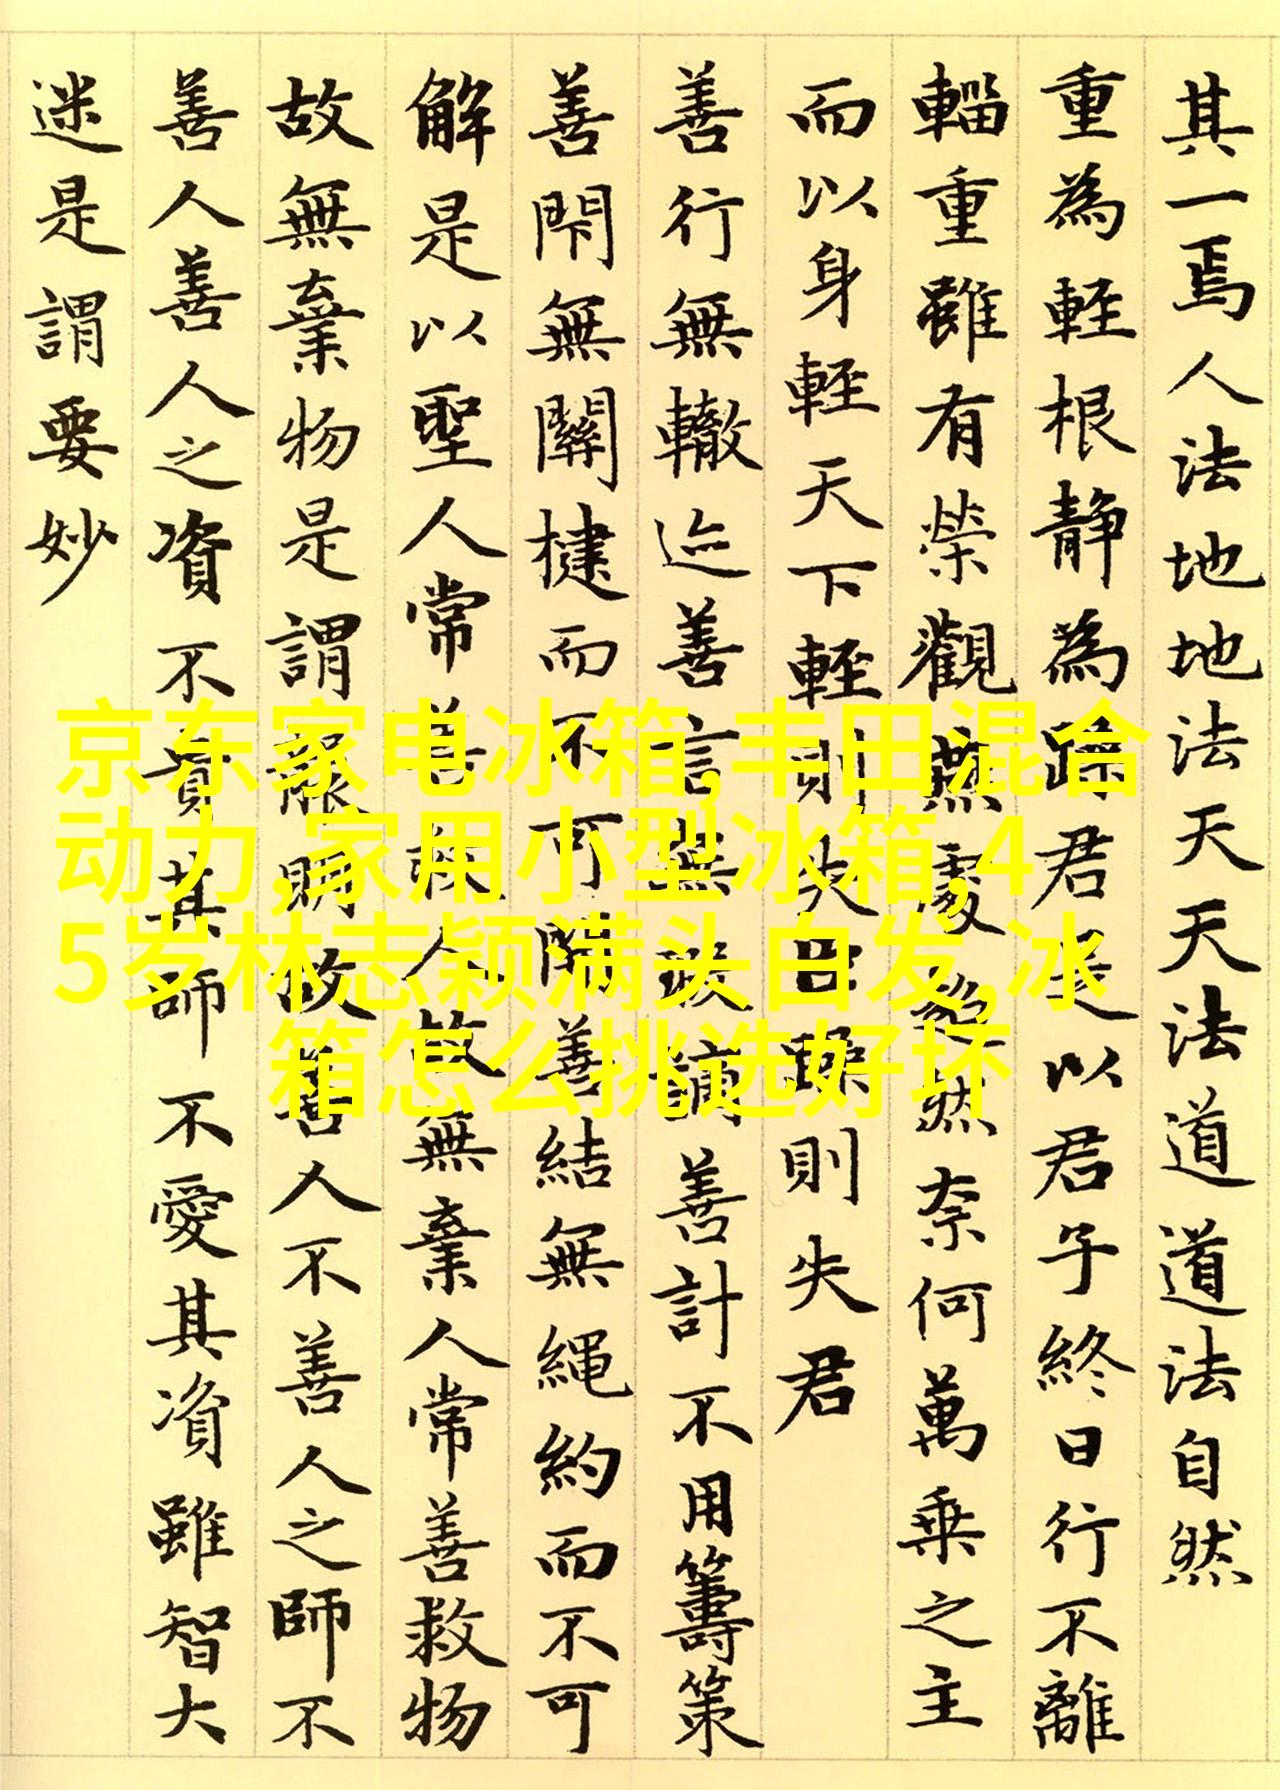 其一焉人法地地法天天法道道法自然
重為輕根靜為躁君是以君子終日行不離
輜重雖有榮觀燕處超然奈何萬乘之主
而以身輕天下輕則失臣躁則失君
善行無轍迹善言無瑕謫善計不用籌策
善閇無關楗而不可開善結無繩約而不可
解是以聖人常善救人故無棄人常善救物
故無棄物是謂襲明故善人不善人之師不
善人善人之資不貴其師不愛其資雖智大
迷是謂要妙
京东家电冰箱,丰田混合
动力,家用小型冰箱,4
5岁林志颖满头白发,冰
箱怎么挑选好坏